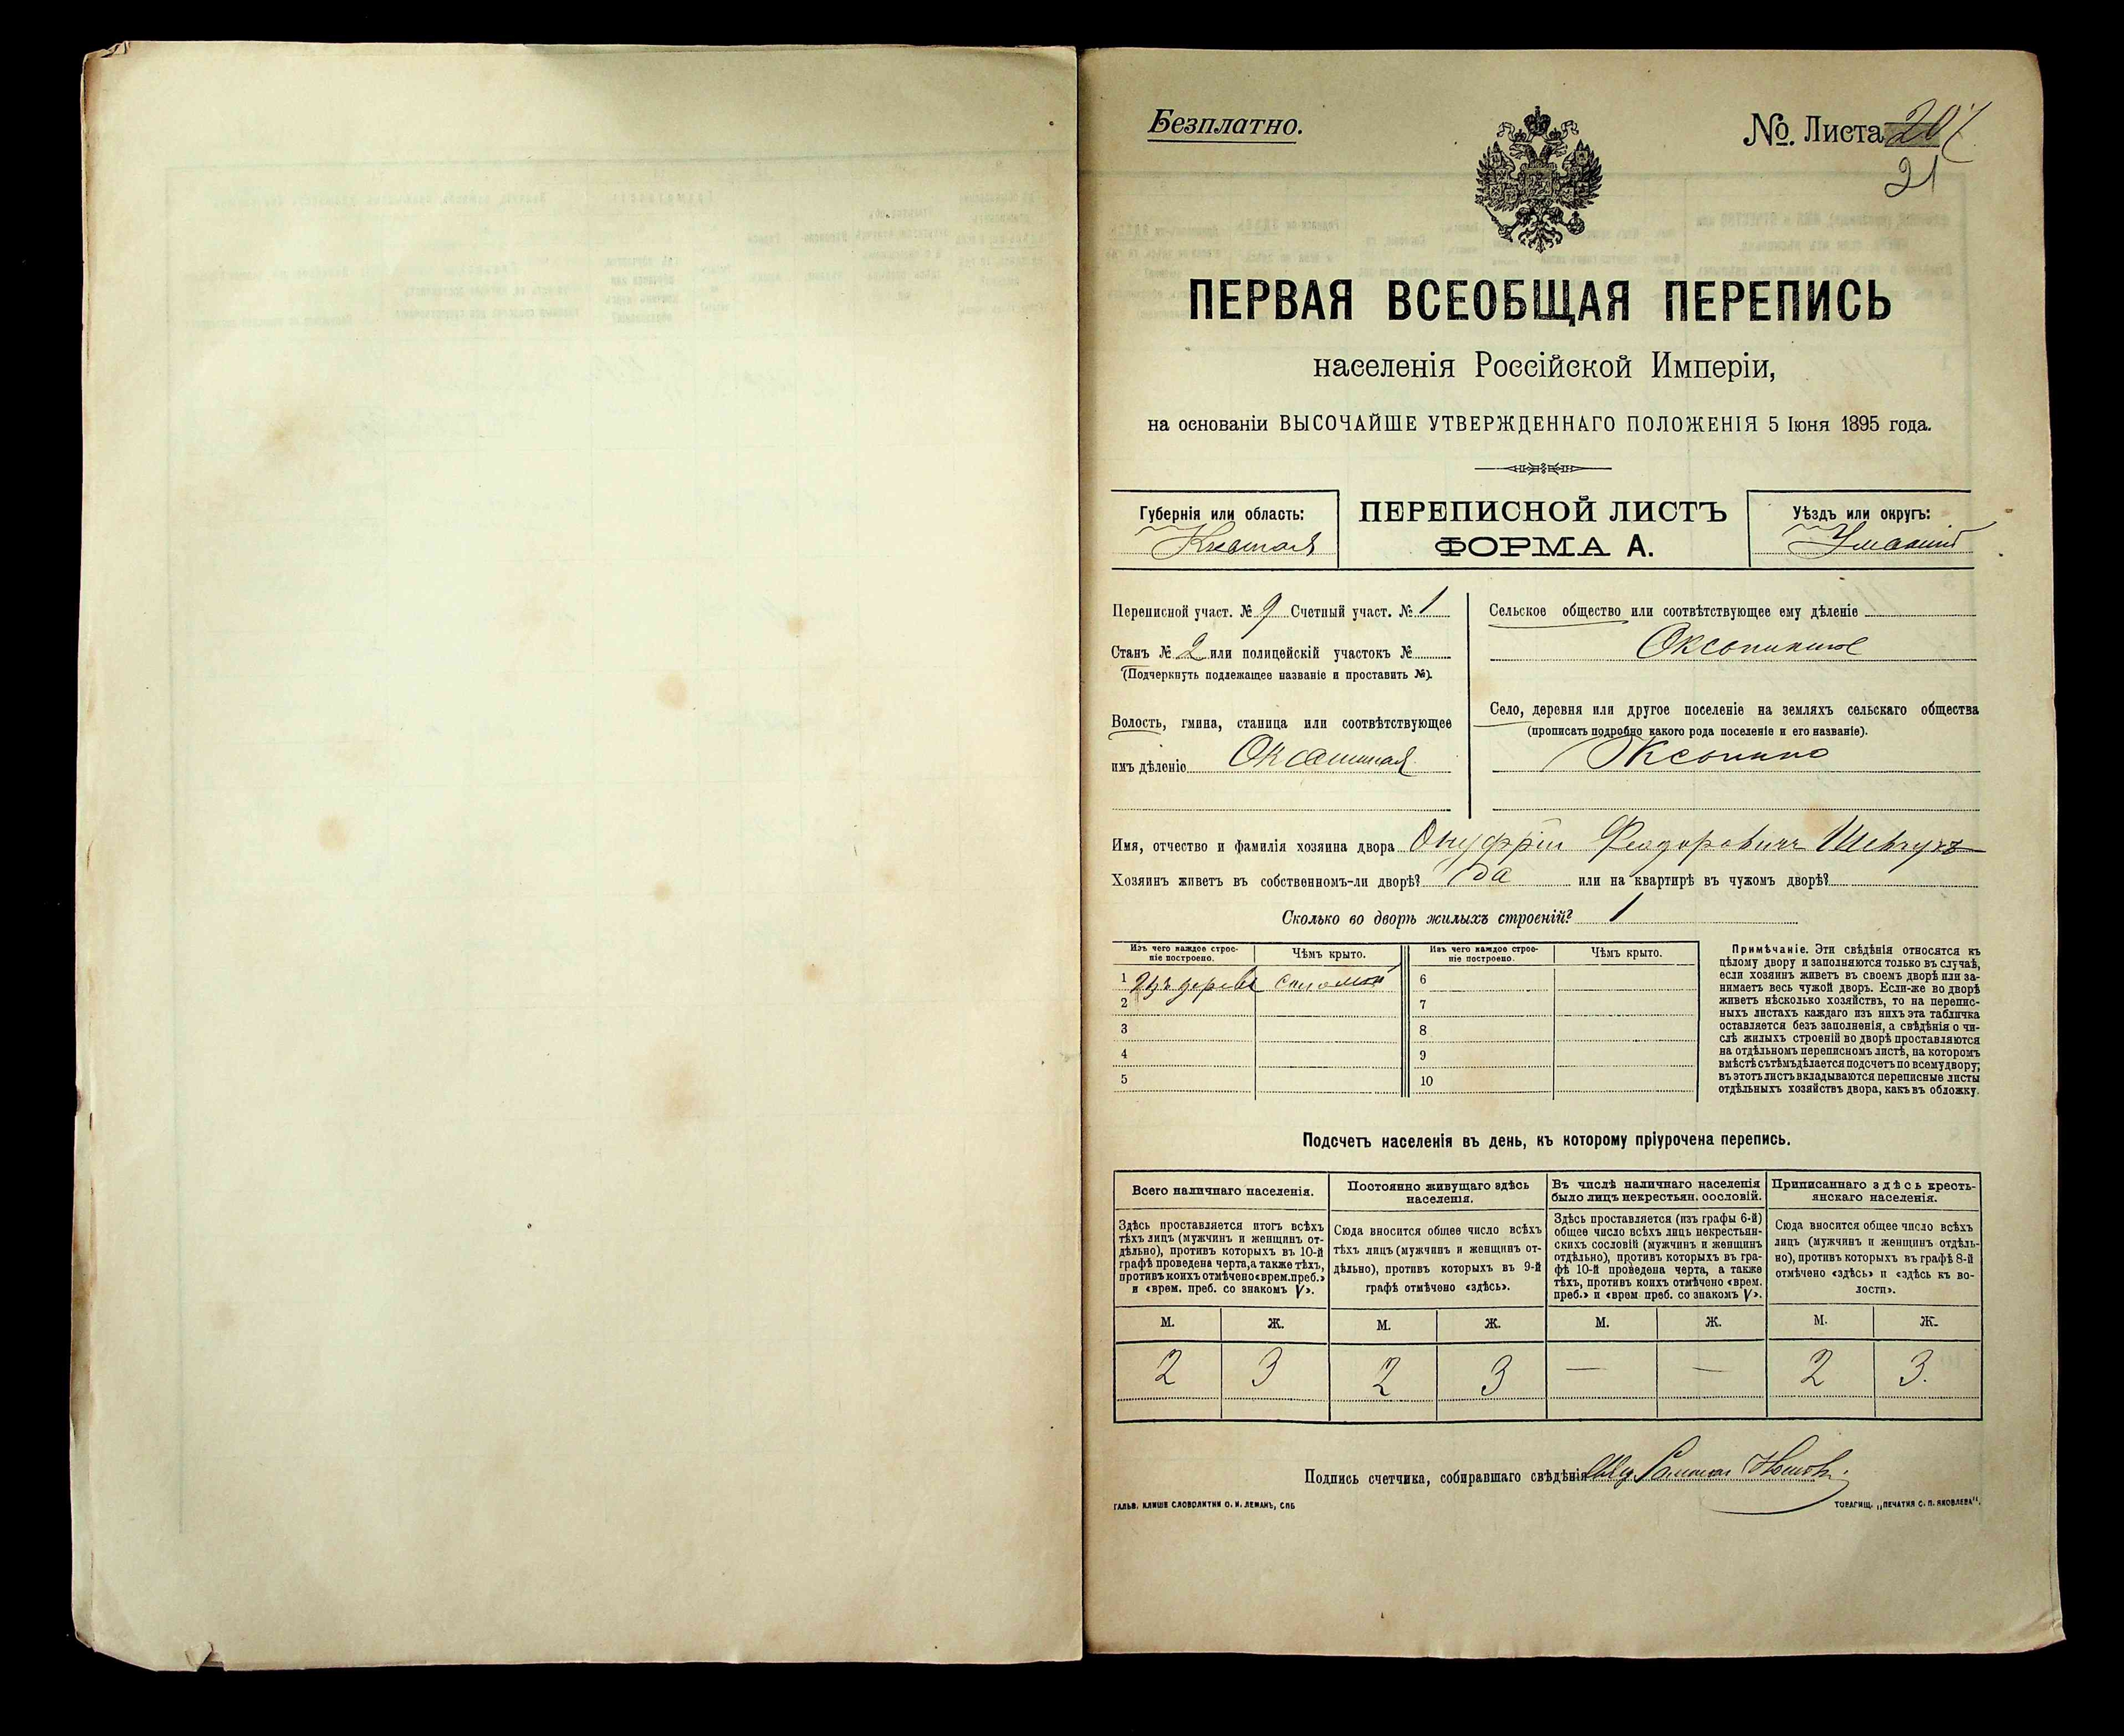 Безплатно.
№. Листа 20
21
ПЕРВАЯ ВСЕОБЩАЯ ПЕРЕПИСЬ
населенія Россійской Имперіи,
на основаніи ВЫСОЧАЙШЕ УТВЕРЖДЕННАГО ПОЛОЖЕНІЯ 5 Іюня 1895 года.
Губернія или область:
Кіевская
ПЕРЕПИСНОЙ ЛИСТЪ
ФОРМА А.
Уѣздъ или округъ:
Уманскій
Переписной участ. № 9 Счетный участ. № 1
Станъ № 2 или полицейскій участокъ №
(Подчеркнуть подлежащее названіе и проставить №).
Волость, гмина, станица или соотвѣтствующее
имъ дѣленіе
Сельское общество или соотвѣтствующее ему дѣленіе
Село, деревня или другое поселеніе на земляхъ сельскаго общества
(прописать подробно какого рода поселеніе и его названіе).
Имя, отчество и фамилія хозяина двора Онуфрій Феодоровичъ Шевчукъ
Хозяинъ живетъ въ собственномъ-ли дворѣ? да или на квартирѣ въ чужомъ дворѣ?
Сколько во дворѣ жилыхъ строеній? 1
Изъ чего каждое строе-
ніе построено.
Чѣмъ крыто.
Изъ чего каждое строе-
ніе построено.
Чѣмъ крыто.
1 Изъ дерева соломой
2
3
4
5
6
7
8
9
10
Примѣчаніе. Эти свѣдѣнія относятся къ
цѣлому двору и заполняются только въ случаѣ,
если хозяинъ живетъ въ своемъ дворѣ или за-
нимаетъ весь чужой дворъ. Если-же во дворѣ
живетъ нѣсколько хозяйствъ, то на перепис-
ныхъ листахъ каждаго изъ нихъ эта табличка
оставляется безъ заполненія, а свѣдѣнія о чи-
слѣ жилыхъ строеній во дворѣ проставляются
на отдѣльномъ переписномъ листѣ, на которомъ
вмѣстѣ съ тѣмъ дѣлается подсчетъ по всему двору;
въ этотъ листъ вкладываются переписные листы
отдѣльныхъ хозяйствъ двора, какъ въ обложку.
Подсчетъ населенія въ день, къ которому пріурочена перепись.
Всего наличнаго населенія.
Здѣсь проставляется итогъ всѣхъ
тѣхъ лицъ (мужчинъ и женщинъ от-
дѣльно), противъ которыхъ въ 10-й
графѣ проведена черта, а также тѣхъ,
противъ коихъ отмѣчено «врем. преб.»
и «врем. преб. со знакомъ V».
Постоянно живущаго здѣсь
населенія.
Сюда вносится общее число всѣхъ
тѣхъ лицъ (мужчинъ и женщинъ от-
дѣльно), противъ которыхъ въ 9-й
графѣ отмѣчено «здѣсь».
Въ числѣ наличнаго населенія
было лицъ некрестьян. сословій.
Здѣсь проставляется (изъ графы 6-й)
общее число всѣхъ лицъ некрестьян-
скихъ сословій (мужчинъ и женщинъ
отдѣльно), противъ которыхъ въ гра-
фѣ 10-й проведена черта, а также
тѣхъ, противъ коихъ отмѣчено «врем.
преб.» и «врем преб. со знакомъ V».
Приписаннаго здѣсь кресть-
янскаго населенія.
Сюда вносится общее число всѣхъ
лицъ (мужчинъ и женщинъ отдѣль-
но), противъ которыхъ въ графѣ 8-й
отмѣчено «здѣсь» и «здѣсь къ во-
лости».
М. Ж. М. Ж. М. Ж. М. Ж.
2 3 2 3 — — 2 3.
Подпись счетчика, собиравшаго свѣдѣнія
ГАЛЬВ. КЛИШЕ СЛОВОЛИТНИ О. И. ЛЕМАНЪ, СПБ
ТОВАРИЩ. „ПЕЧАТНЯ С. П. ЯКОВЛЕВА".